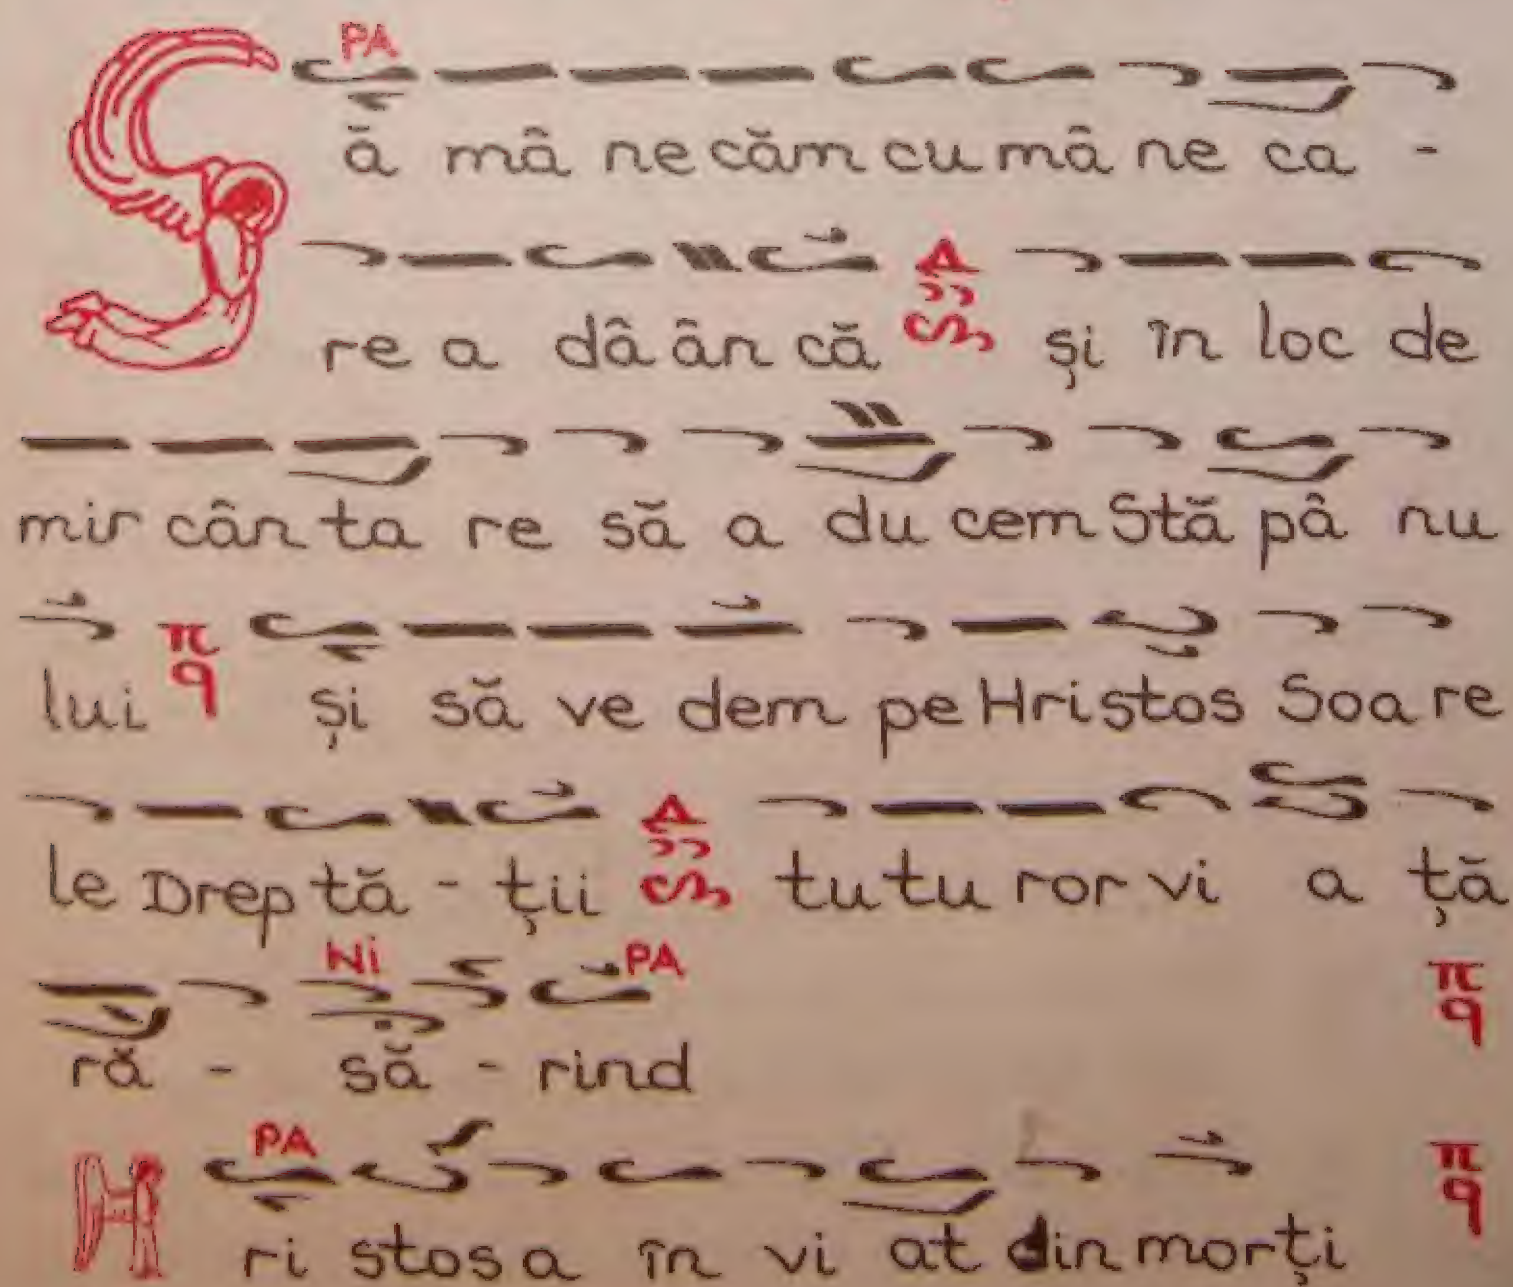 PA
Să mâ ne căm cu mâ ne ca -
re a dâ ân că Δ și în loc de
mir cân ta re să a du cem Stă pâ nu
lui π q și să ve dem pe Hristos Soa re
le Drep tă - ții Δ tu tu ror vi a ță
Ni PA π
ră - să - rind q
PA π
Hri stos a în vi at din morți q